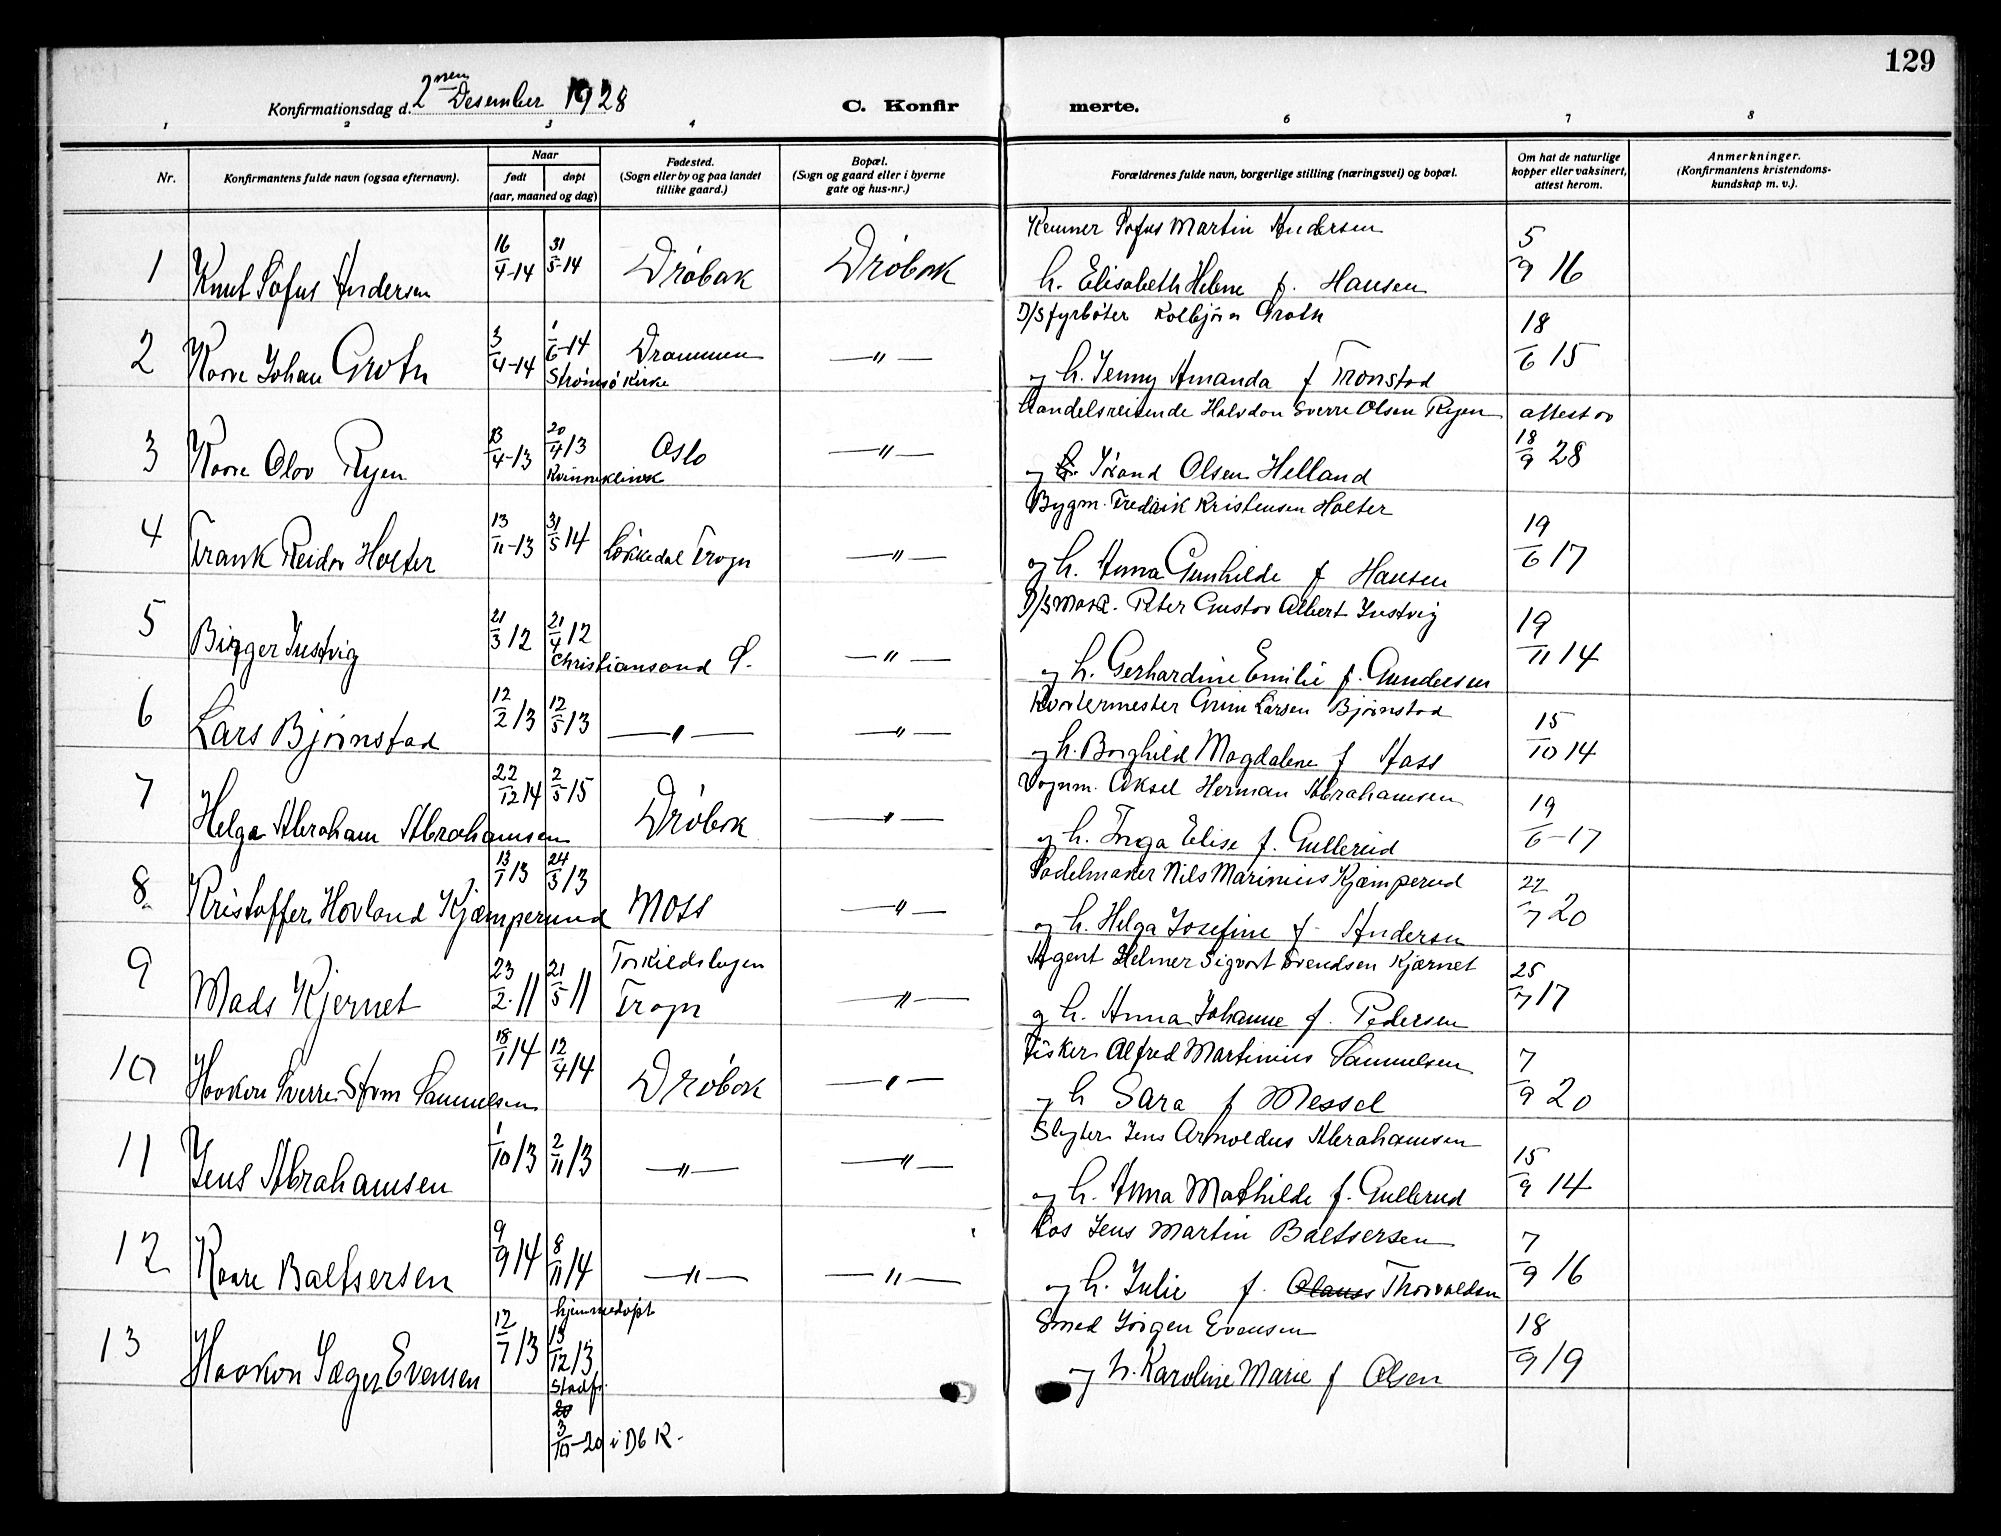 129
Konfirmationsdag d. 2nen Desember 1928
C. Konfirmerte.
1 2 3 4 6 7 8
Nr.
Konfirmantens fulde navn (ogsaa efternavn).
Naar
født
døpt
(aar, maaned og dag)
Fødested.
(Sogn eller by og paa landet
tillike gaard.)
Bopæl.
(Sogn og gaard eller i byerne
gate og hus-nr.)
Forældrenes fulde navn, borgerlige stilling (næringsvei) og bopæl.
Om hat de naturlige
kopper eller vaksinert,
attest herom.
Anmerkninger.
(Konfirmantens kristendoms-
kundskap m. v.).
Kemner Sofus Martin Andersen
1 Knut Sofus Andersen 16/4-14 31/5-14 Drøbak Drøbak h. Elisabeth Helene f. Hansen 5/9 16
D/S fyrbøter Kolbjørn Groth
2 Kaare Johan Groth 3/4-14 1/6-14 Strømsø Kirke Drammen —"— og h. Jenny Amanda f Tronstad 18/6 15
Handelsreisende Halvdan Sverre Olsen Ryen attest av
3 Kaare Olav Ryen 13/4-13 20/4 13 Kvinneklinik Oslo —"— og h. Olsen Helland 18/9 28
Bygm. Fredrik Kristensen Holter
4 Frank Reidar Holter 13/11-13 31/5 14 Løkkedal Frogn —"— og h. Anna Gunhilde f Hansen 19/6 17
D/S Mask. Peter Gustav Albert Justvig
5 Birger Justvig 21/3 12 21/4 12 Christiansand S. —"— og h. Gerhardine Emilie f. Gundersen 19/11 14
Kvartermester Grim Larsen Bjørnstad
6 Lars Bjørnstad 12/2 13 12/5 13 —"— —"— og h. Borghild Magdalene f Aass 15/10 14
Vognm. Aksel Herman Abrahamsen
7 Helge Abraham Abrahamsen 22/12 14 2/5 15 Drøbak —"— og h. Inga Elise f. Gullerud 19/6-17
Sadelmaker Nils Marinius Kjæmperud
8 Kristoffer Hovland Kjæmperud 13/1 13 24/3 13 Moss —"— og h. Helga Josefine f. Andersen 22/7 20
Agent Helmer Sigvart Svendsen Kjærnet
9 Mads Kjernet 23/2. 11 21/5 11 Torkildsbyen Frogn —"— og h. Anna Johanne f. Pedersen 25/7 17
Fisker Alfred Martinius Samuelsen
10 Haakon Sverre Strøm Samuelsen 18/1 14 12/4 14 Drøbak —"— og h Sara f Messel 7/9 20
Slagter Jens Arnoldus Abrahamsen
11 Jens Abrahamsen 1/10 13 2/11 13 —"— —"— og h. Anna Mathilde f. Gullerud 15/9 14
Los Jens Martin Baltsersen
12 Kaare Baltsersen 9/9 14 8/11 14 —"— —"— og h. Julie f. Thorvaldsen 7/9 16
hjemmedøpt
Smed Jørgen Evensen
13 Haakon Sæger Evensen 12/7 13 13/12 13 og h. Karoline Marie f Olsen 18/9 19
Stadf.
20
3/10-20 i Db K.